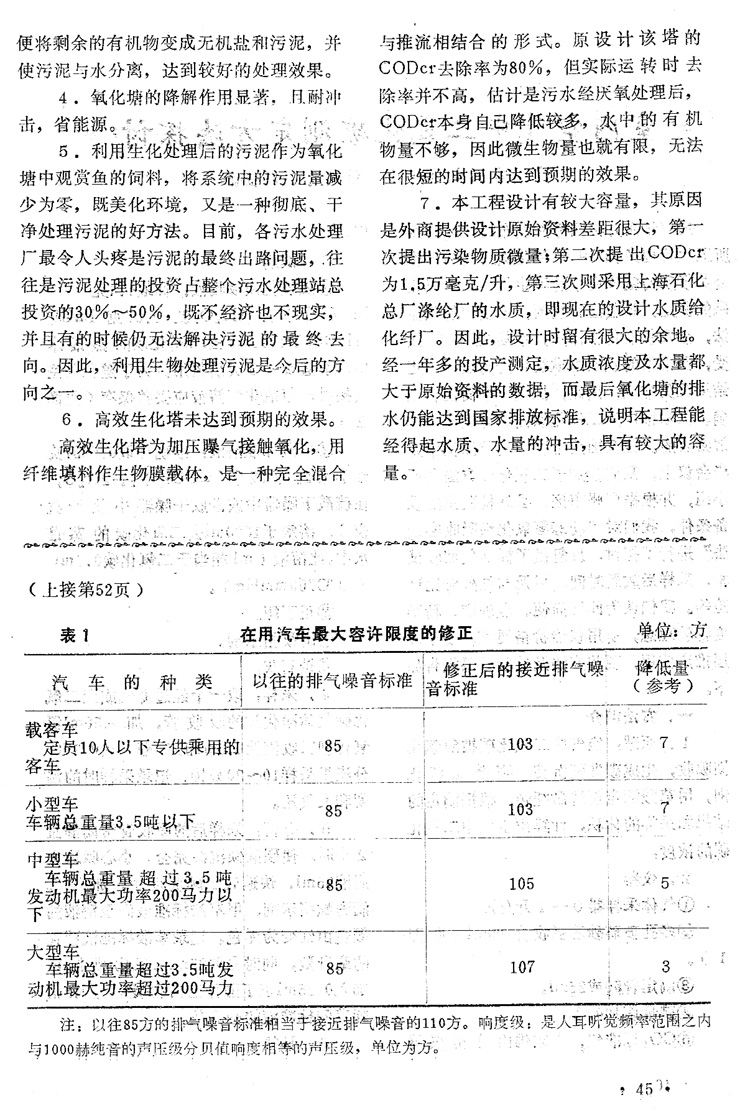 便将剩余的有机物变成无机盐和污泥，并
使污泥与水分离，达到较好的处理效果。
4．氧化塘的降解作用显著，且耐冲
击，省能源。
5．利用生化处理后的污泥作为氧化
塘中观赏鱼的饲料，将系统中的污泥量减
少为零，既美化环境，又是一种彻底、干
净处理污泥的好方法。目前，各污水处理
厂最令人头疼是污泥的最终出路问题，往
往是污泥处理的投资占整个污水处理站总
投资的30%～50%，既不经济也不现实，
并且有的时候仍无法解决污泥的最终去
向。因此，利用生物处理污泥是今后的方
向之一。
6．高效生化塔未达到预期的效果。
高效生化塔为加压曝气接触氧化，用
纤维填料作生物膜载体，是一种完全混合
与推流相结合的形式。原设计该塔的
CODcr去除率为80%，但实际运转时去
除率并不高，估计是污水经厌氧处理后，
CODcr本身自己降低较多，水中的有机
物量不够，因此微生物量也就有限，无法
在很短的时间内达到预期的效果。
7．本工程设计有较大容量，其原因
是外商提供设计原始资料差距很大，第一
次提出污染物质微量；第二次提出CODcr
为1.5万毫克/升，第三次则采用上海石化
总厂涤纶厂的水质，即现在的设计水质给
化纤厂。因此，设计时留有很大的余地。
经一年多的投产测定，水质浓度及水量都
大于原始资料的数据，而最后氧化塘的排
水仍能达到国家排放标准，说明本工程能
经得起水质、水量的冲击，具有较大的容
量。
（上接第52页）
表1 在用汽车最大容许限度的修正 单位：方
汽车的种类 以往的排气噪音标准 修正后的接近排气噪音标准 降低量（参考）
载客车
定员10人以下专供乘用的 85 103 7
客车
小型车
车辆总重量3.5吨以下 85 103 7
中型车
车辆总重量超过3.5吨
发动机最大功率200马力以 85 105 5
下
大型车
车辆总重量超过3.5吨发 85 107 3
动机最大功率超过200马力
注：以往85方的排气噪音标准相当于接近排气噪音的110方。响度级：是人耳听觉频率范围之内
与1000赫纯音的声压级分贝值响度相等的声压级，单位为方。
45